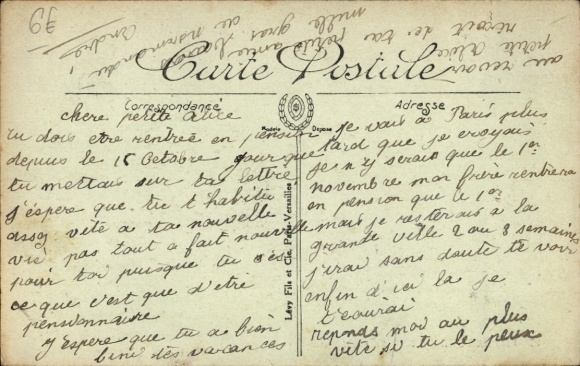 Carte Postale
Correspondance
Modèle Déposé
Adresse
chere petite Alice
tu dois etre rentrée en pension
depuis le 15 Octobre jour que
tu mettais sur ta lettre
j'éspere que tu t'habitu
assez vite a ta nouvelle
vie pas tout a fait nouvelle
pour toi puisque tu sais
ce que c'est que d'etre
pensionnaire
J'Espere que tu a bien
fini tes vacances
je vais a Paris plus
tard que je croyais
je n'y serais que le 1er
novembre mon frère rentrera
en pension que le 1er
mais je resterais a la
grande ville 2 ou 3 semaines
j'irai sans doute te voir
enfin d'ici la je
t'ecrirai
reponds moi au plus
vite si tu le peux
au revoir
petite Alice
reçoit de ta petite amie
mille gros
de normandie
Andrée
79
Lévy Fils et Cie, Paris-Versailles